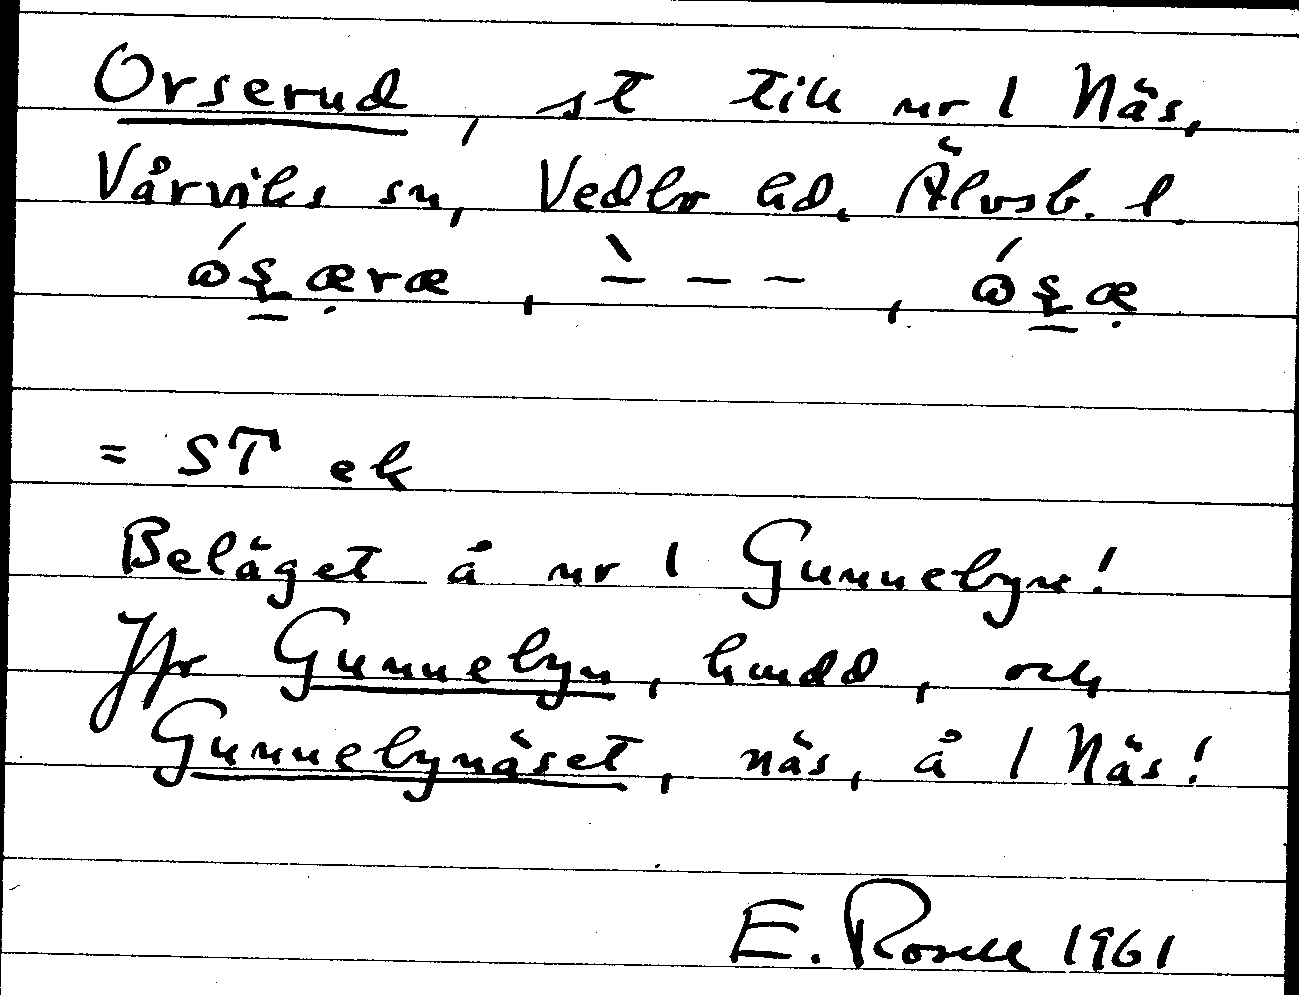 Orserud, st till nr 1 Näs,
Vårviks sn, Vedbo hd. Älvsb. l.
= ST ek
Beläget å nr 1 Gunnebyn!
Jfr Gunnebyn, hmdd, och
Gunnebynäset, näs, å 1 Näs!
E. Rosell 1961